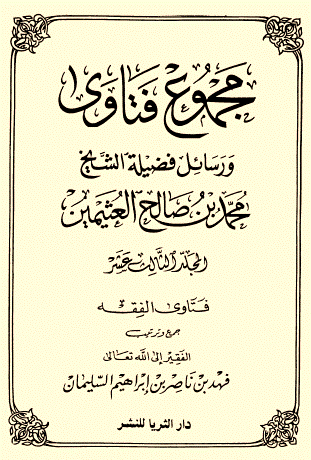 مجموع فتاوى
ورسائل فضيلة الشيخ
محمد بن صالح العثيمين
المجلد الثالث عشر
فتاوى الفقه
جمع وترتيب
الفقير إلى الله تعالى
فهد بن ناصر بن إبراهيم السليمان
دار الثريا للنشر